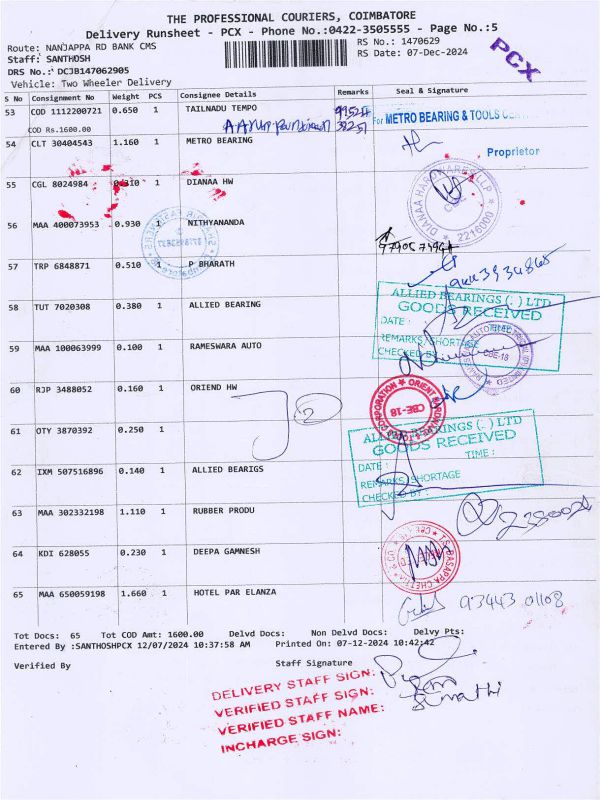 THE PROFESSIONAL COURIERS, COIMBATORE
Delivery Runsheet - PCX - Phone No.:0422-3505555 - Page No.:5
Route: NANJAPPA RD BANK CMS RS No.: 1470629
Staff: SANTHOSH RS Date: 07-Dec-2024
PCX
DRS No.: DCJB147062905
Vehicle: Two Wheeler Delivery
S No Consignment No Weight PCS Consignee Details Remarks Seal & Signature
53 COD 1112200721 0.650 1 TAILNADU TEMPO
COD Rs.1600.00
For METRO BEARING & TOOLS
54 CLT 30404543 1.160 1 METRO BEARING
Proprietor
55 CGL 8024984 0.310 1 DIANAA HW
DIANAA HARDWARE LLP
CBE
2216000
56 MAA 400073953 0.930 1 NITHYANANDA
57 TRP 6848871 0.510 1 P BHARATH
58 TUT 7020308 0.380 1 ALLIED BEARING
ALLIED BEARINGS (.) LTD
GOODS RECEIVED
DATE :
REMARKS/SHORTAGE
CHECKED BY
59 MAA 100063999 0.100 1 RAMESWARA AUTO
CBE-18
60 RJP 3488052 0.160 1 ORIEND HW
CBE-18
61 OTY 3870392 0.250 1
ALLIED BEARINGS (.) LTD
GOODS RECEIVED
DATE : TIME :
REMARKS/SHORTAGE
CHECKED BY :
62 IXM 507516896 0.140 1 ALLIED BEARIGS
63 MAA 302332198 1.110 1 RUBBER PRODU
64 KDI 628055 0.230 1 DEEPA GAMNESH
65 MAA 650059198 1.660 1 HOTEL PAR ELANZA
93443 01108
Tot Docs: 65 Tot COD Amt: 1600.00 Delvd Docs: Non Delvd Docs: Delvy Pts:
Entered By :SANTHOSHPCX 12/07/2024 10:37:58 AM Printed On: 07-12-2024 10:42:42
Verified By Staff Signature
DELIVERY STAFF SIGN:
VERIFIED STAFF SIGN:
VERIFIED STAFF NAME:
INCHARGE SIGN: